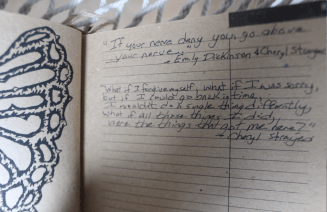 "If your nerve deny you, go above
your nerve."
- Emily Dickinson & Cheryl Strayed
"What if I forgave myself, what if I was sorry,
but if I could go back in time,
I wouldn't do a single thing differently,
what if all these things I did,
were the things that got me here?"
- Cheryl Strayed